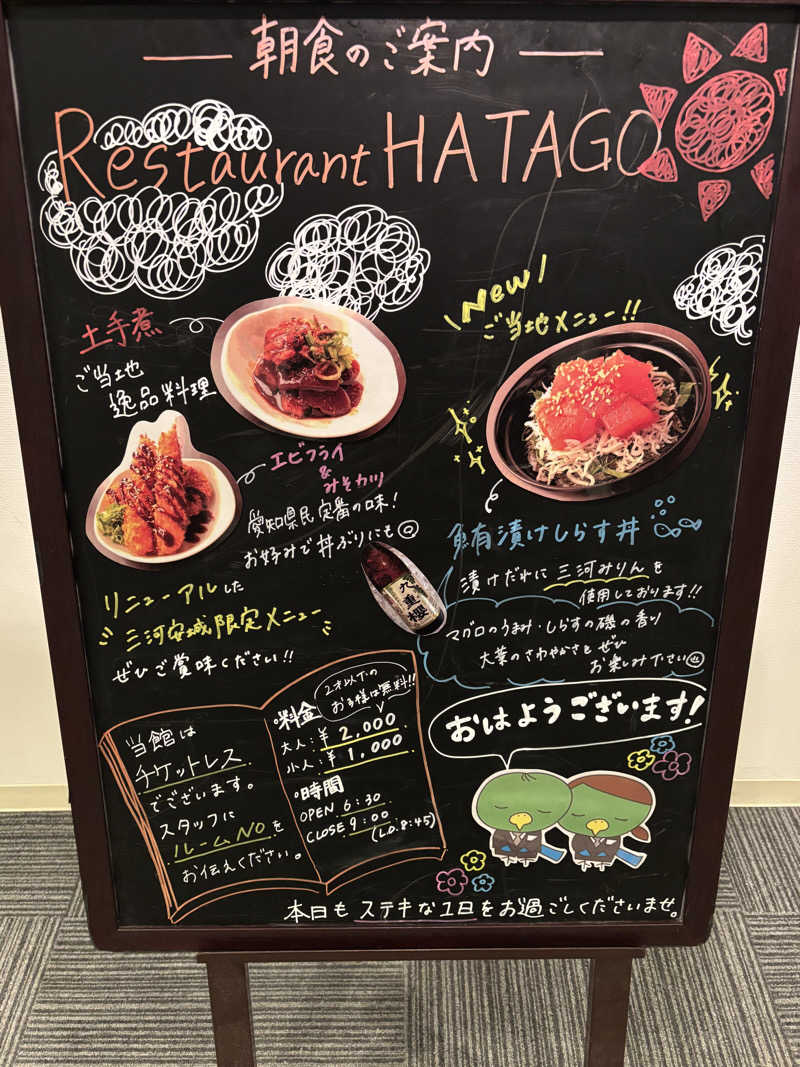 朝食のご案内
Restaurant HATAGO
土手煮
ご当地
逸品料理
エビフライ
&
みそカツ
愛知県民定番の味!
お好みで丼ぶりにも
リニューアルした
三河安城限定メニュー
ぜひご賞味ください!!
New
ご当地メニュー!!
鮪漬けしらす丼
九重櫻
漬けだれに三河みりんを
使用しております!!
マグロのうまみ・しらすの磯の香り
大葉のさわやかさをぜひ
お楽しみ下さい
当館は
チケットレス
でございます。
スタッフに
ルームNOを
お伝えください。
2才以下の
お子様は無料!!
・料金
大人:¥2,000
小人:¥1,000
・時間
OPEN 6:30
CLOSE 9:00
(L.O.8:45)
おはようございます!
本日もステキな1日をお過ごしくださいませ。